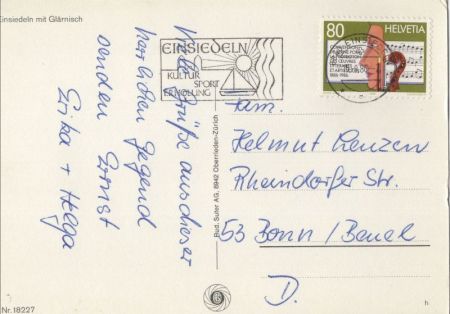 Einsiedeln mit Glärnisch
EINSIEDELN
KULTUR
SPORT
ERHOLUNG
80
HELVETIA
Viele Grüße aus dieser
herrlichen Gegend
senden Ernst
Erika + Helga
Bud. Suter AG, 8942 Oberrieden-Zürich
Fam.
Helmut Lenzen
Rheindorfer Str.
53 Bonn/Beuel
D.
Nr. 18227
h